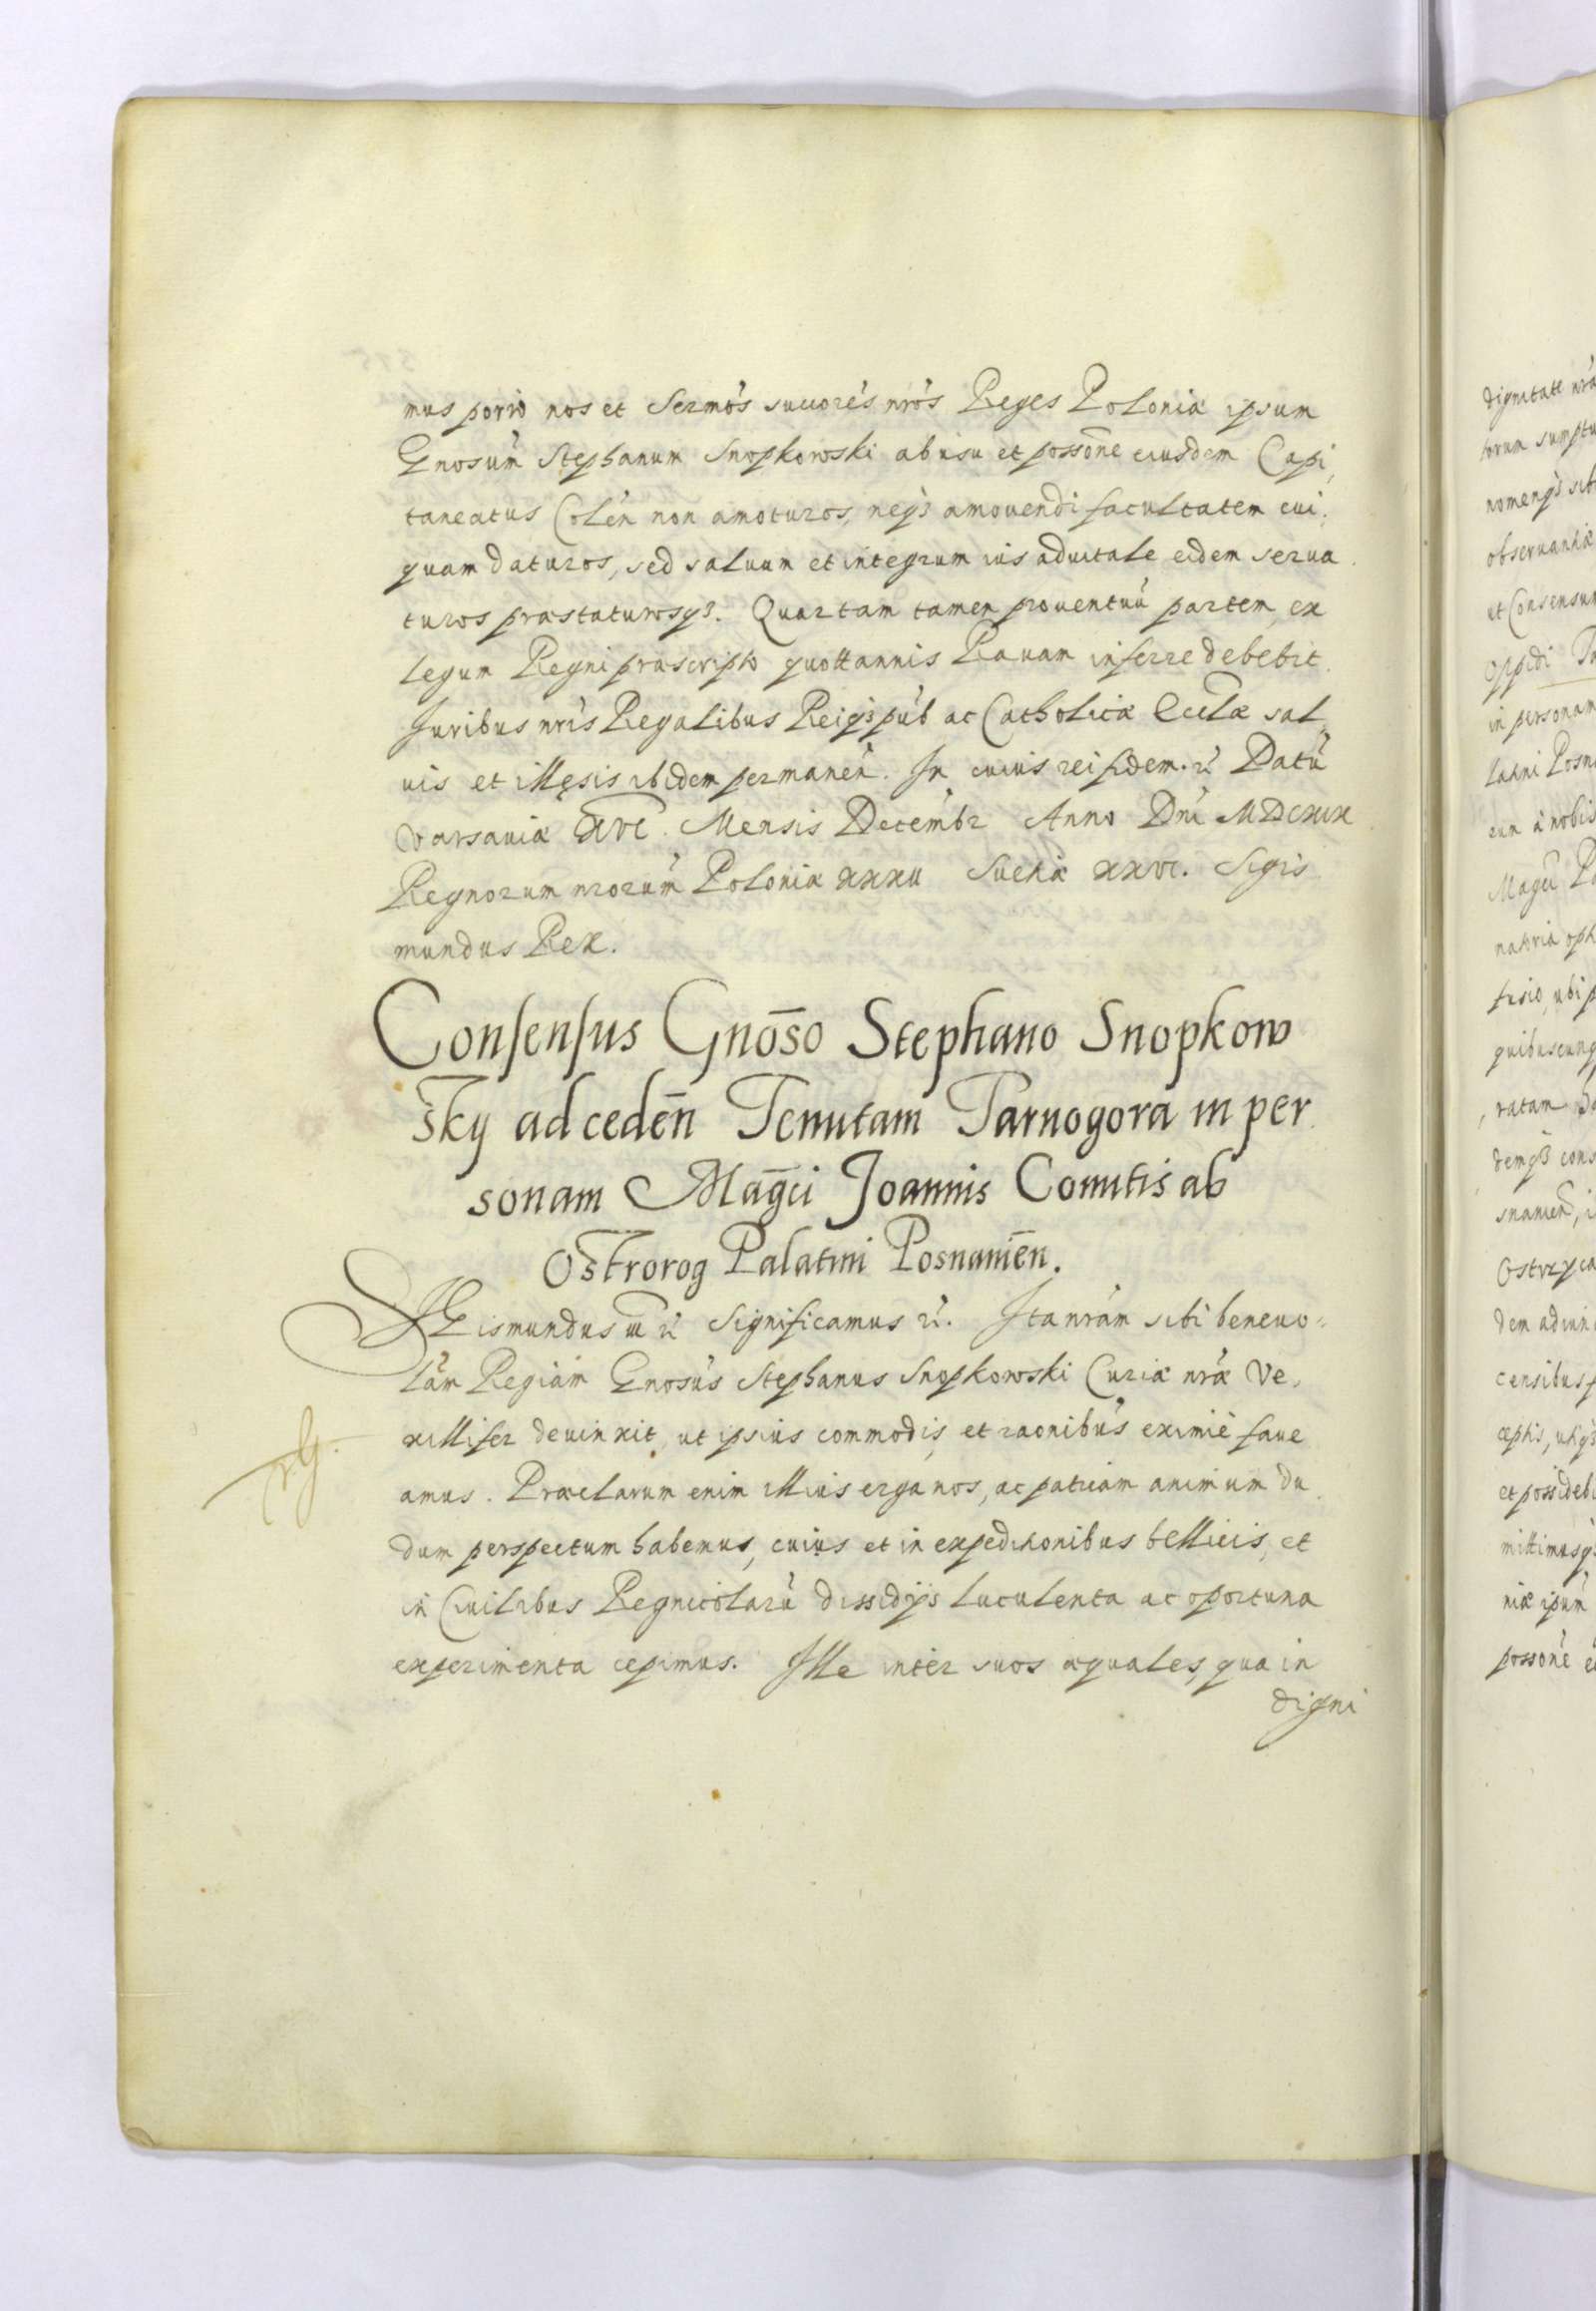 mus porro nos et Sermos succores nros Reges Poloniæ ipsum
Gnosum Stephanum Snopkowski ab usu et possone eiusdem Capi,
taneatus Colen non amoturos, neqз amouendi facultatem cui,
quam daturos, sed saluum et integrum ius aduitale eidem serua
turos præstaturosqз. Quartam tamen prouentuu partem, ex
legum Regni præscripto quottannis Rauam inferre debebit.
Juribus nris Regalibus Reiqз pub ac Catholicæ Ecclæ sal,
uis et illęsis ibidem permanen. In cuius rei fidem. rc Datu
Varsauiæ Mensis Decembr Anno Dni MDCXIX
Regnorum nrorum Poloniæ xxxii Sueciæ xxvi. Sigis
mundus Rex.
Consensus Gnoso Stephano Snopkow
sky ad ceden Tenutam Tarnogora in per
sonam Magci Joannis Comitis ab
Ostrorog Palatini Posnanien.
Sigismundus iii rc Significamus rc. Ita nram sibi beneuo=
lam Regiam Gnosus Stephanus Snopkowski Curiæ nræ Ve,
xillifer deuinxit, ut ipsius commodis, et raonibus eximiè faue
amus. Præclarum enim illius erga nos, ac patriam animum du
dum perspectum habemus, cuius et in expeditionibus bellicis, et
in Ciuilibus Regnicolaru dissidijs luculenta ac oportuna
experimenta cepimus. Ille inter suos æquales, qua in
digni
dignitate nra
torum sumptu
nomenqз sibi
obseruantiæ
ut Consensum
Oppidi
in personam
latini Posn
eum à nobis
Magci
quibuscunq
ratam
demqз cons
snanien,
dem adiun
censibus
et possideb
mittimusqз
niæ ipun
possone